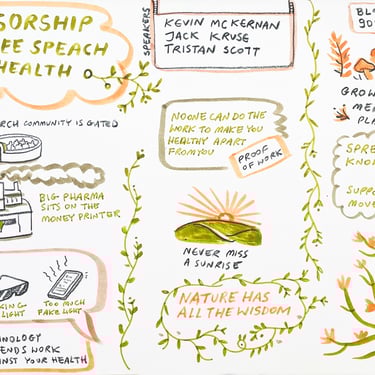 SORSHIP
EE SPEACH
HEALTH
RCH COMMUNITY IS GATED
BIG PHARMA
SITS ON THE
MONEY PRINTER
LIGHT
TOO MUCH
FAKE LIGHT
NOLOGY
ENDS WORK
INST YOUR HEALTH
SPEAKERS
KEVIN MCKERNAN
JACK KRUSE
TRISTAN SCOTT
NOONE CAN DO THE
WORK TO MAKE YOU
HEALTHY APART
FROM YOU
PROOF
OF WORK
NEVER MISS
A SUNRISE
NATURE HAS
ALL THE WISDOM
GROW
ME
PL
SPRE
KNO
SUPP
MOVE